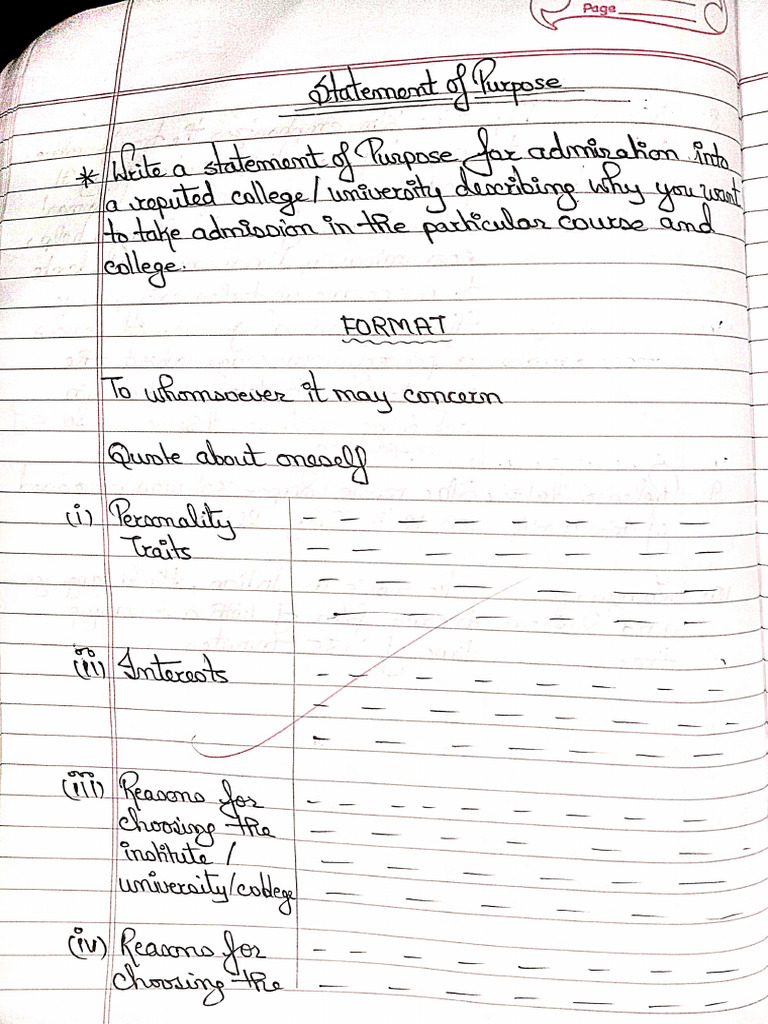 Page
Statement of Purpose
* Write a statement of Purpose for admiration into
a reputed college/university describing why you want
to take admission in the particular course and
college.
FORMAT
To whomsoever it may concern
Quote about oneself
(i) Personality
Traits
(ii) Interests
(iii) Reasons for
choosing the
institute /
university/college
(iv) Reasons for
choosing the